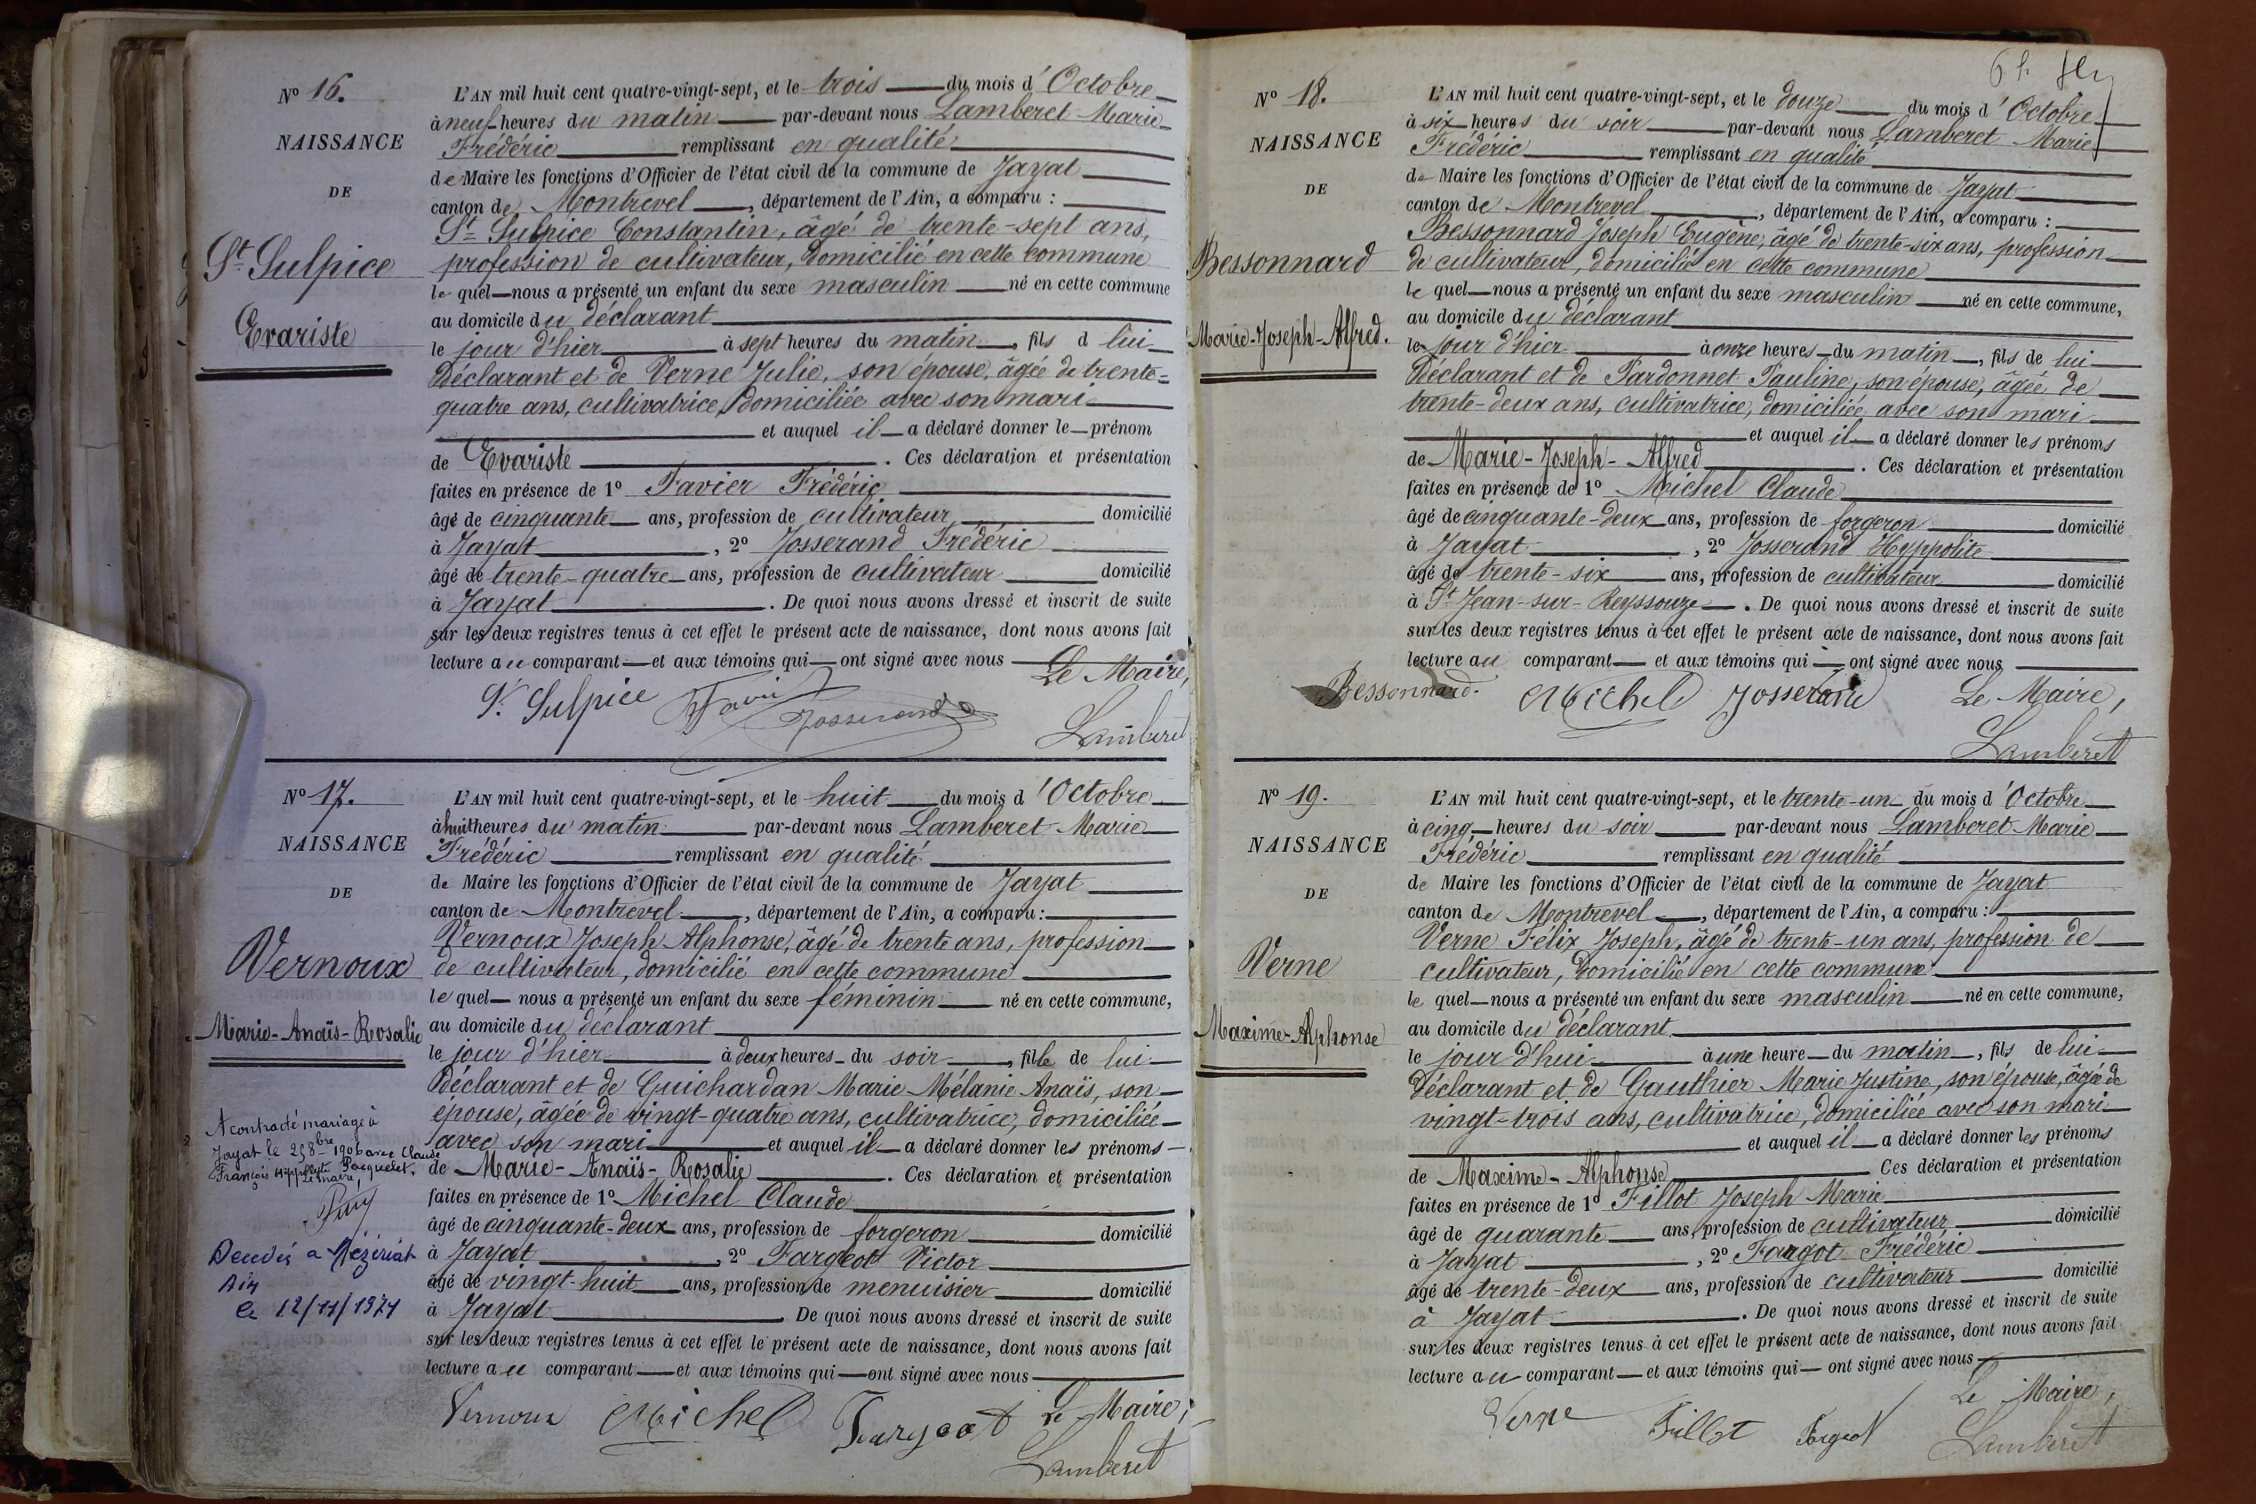 Nº 16.
NAISSANCE
DE
St Sulpice
Evariste
L'AN mil huit cent quatre-vingt-sept, et le trois du mois d'Octobre
à neuf heures du matin par-devant nous Lamberet Marie
Frédéric remplissant en qualité
de Maire les fonctions d'Officier de l'état civil de la commune de Jayat
canton de Montrevel, département de l'Ain, a comparu :
St Sulpice Constantin, âgé de trente-sept ans,
profession de cultivateur, domicilié en cette commune
le quel nous a présenté un enfant du sexe masculin né en cette commune
au domicile du déclarant
le jour d'hier à sept heures du matin, fils d lui
déclarant et de Verne Julie, son épouse, âgée de trente-
quatre ans, cultivatrice, domiciliée avec son mari
et auquel il a déclaré donner le prénom
de Evariste. Ces déclaration et présentation
faites en présence de 1º Favier Frédéric
âgé de cinquante ans, profession de cultivateur domicilié
à Jayat, 2º Josserand Frédéric
âgé de trente-quatre ans, profession de cultivateur domicilié
à Jayat. De quoi nous avons dressé et inscrit de suite
sur les deux registres tenus à cet effet le présent acte de naissance, dont nous avons fait
lecture au comparant et aux témoins qui ont signé avec nous
Le Maire,
St Sulpice Favier Josserand
Lamberet
Nº 17.
NAISSANCE
DE
Vernoux
Marie-Anaïs-Rosalie
A contracté mariage à
Jayat le 25 8bre 1906 avec Claude
François Hippolyte Pacquelet.
Le maire,
Décédée à Mézériat
Ain
le 12/11/1971
L'AN mil huit cent quatre-vingt-sept, et le huit du mois d'Octobre
à huit heures du matin par-devant nous Lamberet Marie
Frédéric remplissant en qualité
de Maire les fonctions d'Officier de l'état civil de la commune de Jayat
canton de Montrevel, département de l'Ain, a comparu :
Vernoux Joseph Alphonse, âgé de trente ans, profession
de cultivateur, domicilié en cette commune
le quel nous a présenté un enfant du sexe féminin né en cette commune,
au domicile du déclarant
le jour d'hier à deux heures du soir, fille de lui
déclarant et de Guichardan Marie Mélanie Anaïs, son
épouse, âgée de vingt-quatre ans, cultivatrice, domiciliée
avec son mari et auquel il a déclaré donner les prénoms
de Marie-Anaïs-Rosalie. Ces déclaration et présentation
faites en présence de 1º Michel Claude
âgé de cinquante-deux ans, profession de forgeron domicilié
à Jayat, 2º Fargeot Victor
âgé de vingt-huit ans, profession de menuisier domicilié
à Jayat De quoi nous avons dressé et inscrit de suite
sur les deux registres tenus à cet effet le présent acte de naissance, dont nous avons fait
lecture au comparant et aux témoins qui ont signé avec nous
Vernoux Michel Fargeot Le Maire,
Lamberet
Nº 18.
NAISSANCE
DE
Bessonnard
Marie-Joseph-Alfred.
L'AN mil huit cent quatre-vingt-sept, et le douze du mois d'Octobre
à six heures du soir par-devant nous Lamberet Marie
Frédéric remplissant en qualité
de Maire les fonctions d'Officier de l'état civil de la commune de Jayat
canton de Montrevel, département de l'Ain, a comparu :
Bessonnard Joseph Eugène, âgé de trente-six ans, profession
de cultivateur, domicilié en cette commune
le quel nous a présenté un enfant du sexe masculin né en cette commune,
au domicile du déclarant
le jour d'hier à onze heures du matin, fils de lui
déclarant et de Pardonnet Pauline, son épouse, âgée de
trente-deux ans, cultivatrice, domiciliée avec son mari
et auquel il a déclaré donner les prénoms
de Marie-Joseph-Alfred. Ces déclaration et présentation
faites en présence de 1º Michel Claude
âgé de cinquante-deux ans, profession de forgeron domicilié
à Jayat, 2º Josserand Hyppolite
âgé de trente-six ans, profession de cultivateur domicilié
à St Jean-sur-Reyssouze. De quoi nous avons dressé et inscrit de suite
sur les deux registres tenus à cet effet le présent acte de naissance, dont nous avons fait
lecture au comparant et aux témoins qui ont signé avec nous
Bessonnard. Michel Josserand Le Maire,
Lamberet
Nº 19.
NAISSANCE
DE
Verne
Maxime-Alphonse
L'AN mil huit cent quatre-vingt-sept, et le trente-un du mois d'Octobre
à cinq heures du soir par-devant nous Lamberet Marie
Frédéric remplissant en qualité
de Maire les fonctions d'Officier de l'état civil de la commune de Jayat
canton de Montrevel, département de l'Ain, a comparu :
Verne Félix Joseph, âgé de trente-un ans, profession de
cultivateur, domicilié en cette commune
le quel nous a présenté un enfant du sexe masculin né en cette commune,
au domicile du déclarant
le jour d'hui à une heure du matin, fils de lui
déclarant et de Gauthier Marie Justine, son épouse, âgée de
vingt-trois ans, cultivatrice, domiciliée avec son mari
et auquel il a déclaré donner les prénoms
de Maxime-Alphonse Ces déclaration et présentation
faites en présence de 1º Fillot Joseph Marie
âgé de quarante ans, profession de cultivateur domicilié
à Jayat, 2º Fargot Frédéric
âgé de trente-deux ans, profession de cultivateur domicilié
à Jayat. De quoi nous avons dressé et inscrit de suite
sur les deux registres tenus à cet effet le présent acte de naissance, dont nous avons fait
lecture au comparant et aux témoins qui ont signé avec nous
Le Maire,
Verne Fillot Fargeot Lamberet